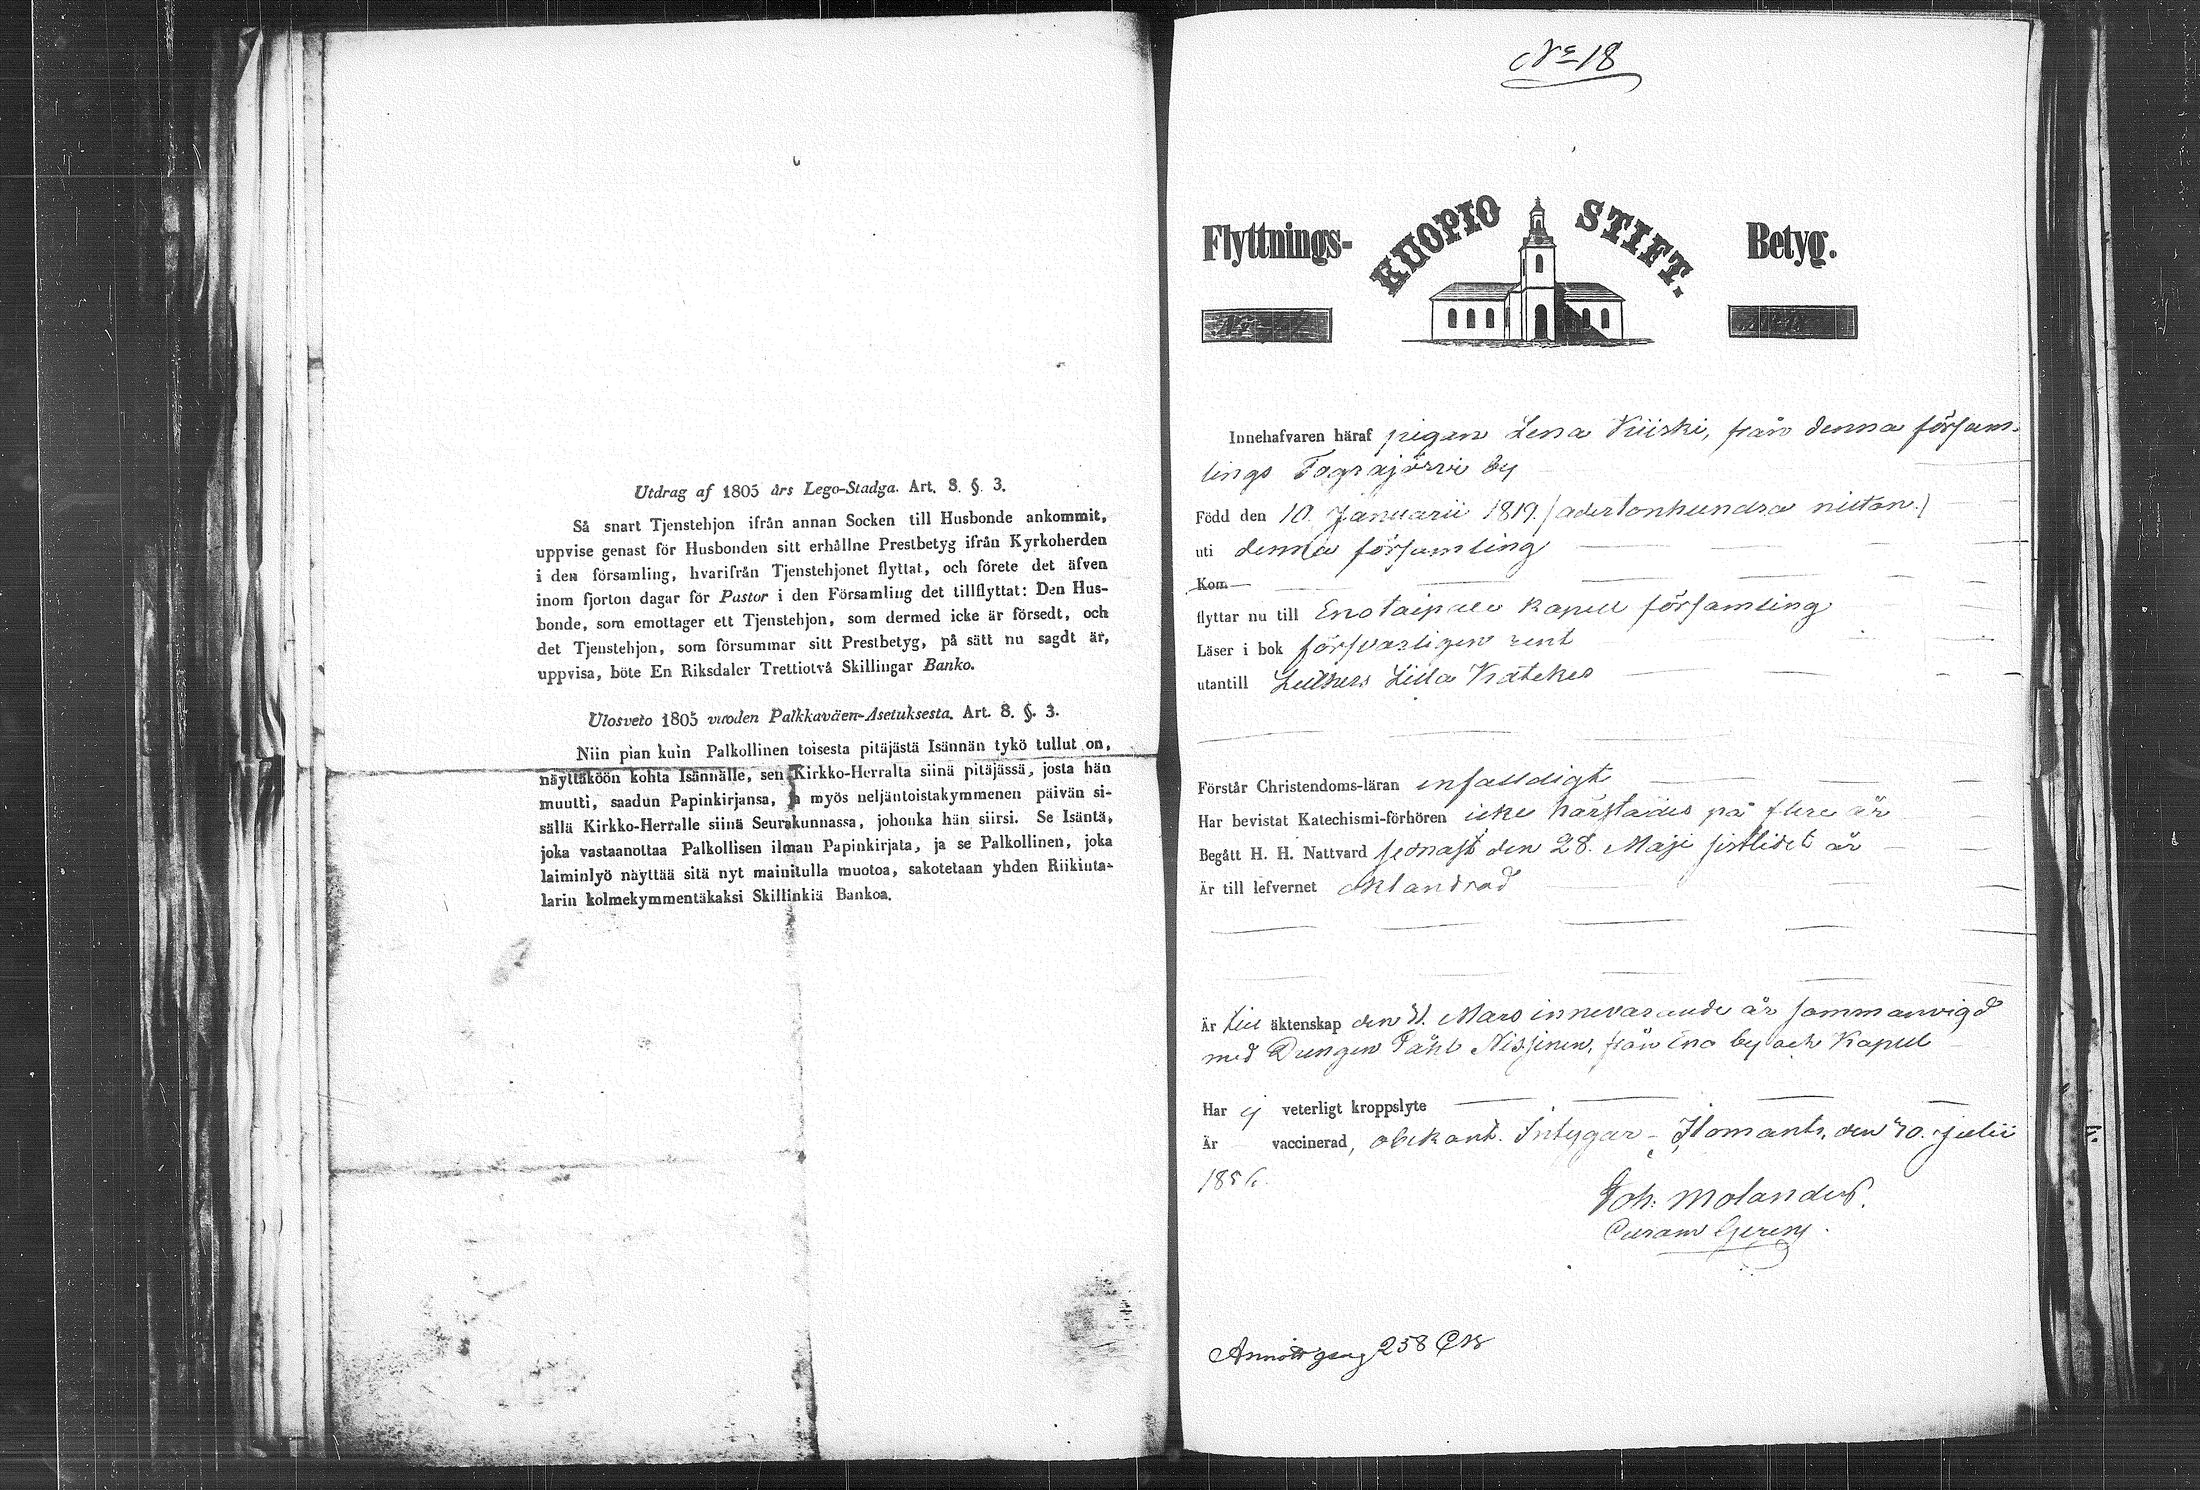 Utdrag af 1805 års Lego-Stadga. Art. 8. §. 3.
Så snart Tjenstehjon ifrån annan Socken till Husbonde ankommit,
uppvise genast för Husbonden sitt erhållne Prestbetyg ifrån Kyrkoherden
i den församling, hvarifrån Tjenstehjonet flyttat, och förete det äfven
inom fjorton dagar för Pastor i den Församling det tillflyttat: Den Hus-
bonde, som emottager ett Tjenstehjon, som dermed icke är försedt, och
det Tjenstehjon, som försummar sitt Prestbetyg, på sätt nu sagdt är,
uppvisa, böte En Riksdaler Trettiotvå Skillingar Banko.
Ulosveto 1805 vuoden Palkkaväen-Asetuksesta. Art. 8. §. 3.
Niin pian kuin Palkollinen toisesta pitäjästä Isännän tykö tullut on,
näyttäköön kohta Isännälle, sen Kirkko-Herralta siinä pitäjässä, josta hän
muutti, saadun Papinkirjansa, ja myös neljäntoistakymmenen päivän si-
sällä Kirkko-Herralle siinä Seurakunnassa, johonka hän siirsi. Se Isäntä,
joka vastaanottaa Palkollisen ilman Papinkirjata, ja se Palkollinen, joka
laiminlyö näyttää sitä nyt mainitulla muotoa, sakotetaan yhden Riikinta-
larin kolmekymmentäkaksi Skillinkiä Bankoa.
No 18
Flyttnings- KUOPIO STIFT. Betyg.
Innehafvaren häraf pigan Lena Kiiski, från denna försam-
lings by
Född den 10. Januarii 1819. /adertonhundra nitton./
uti denna församling
Kom
flyttar nu till Eno kapell församling
Läser i bok försvarligen rent
utantill Lutheri Lilla Katekes
Förstår Christendoms-läran enfaldigt
Har bevistat Katechismi-förhören icke härstädes på flere år
Begått H. H. Nattvard sednast den 28. Maji sistlidet år
Är till lefvernet oklandrad
Är till äktenskap den Mars innevarande år sammanvigd
med Drengen Påhl Nissinen, från Eno by och Kapell
Har ej veterligt kroppslyte
Är vaccinerad, obekant. Intygar Ilomants, den 10. Julii
1856.
Joh: Molander.
Curam Gerens.
pag 258